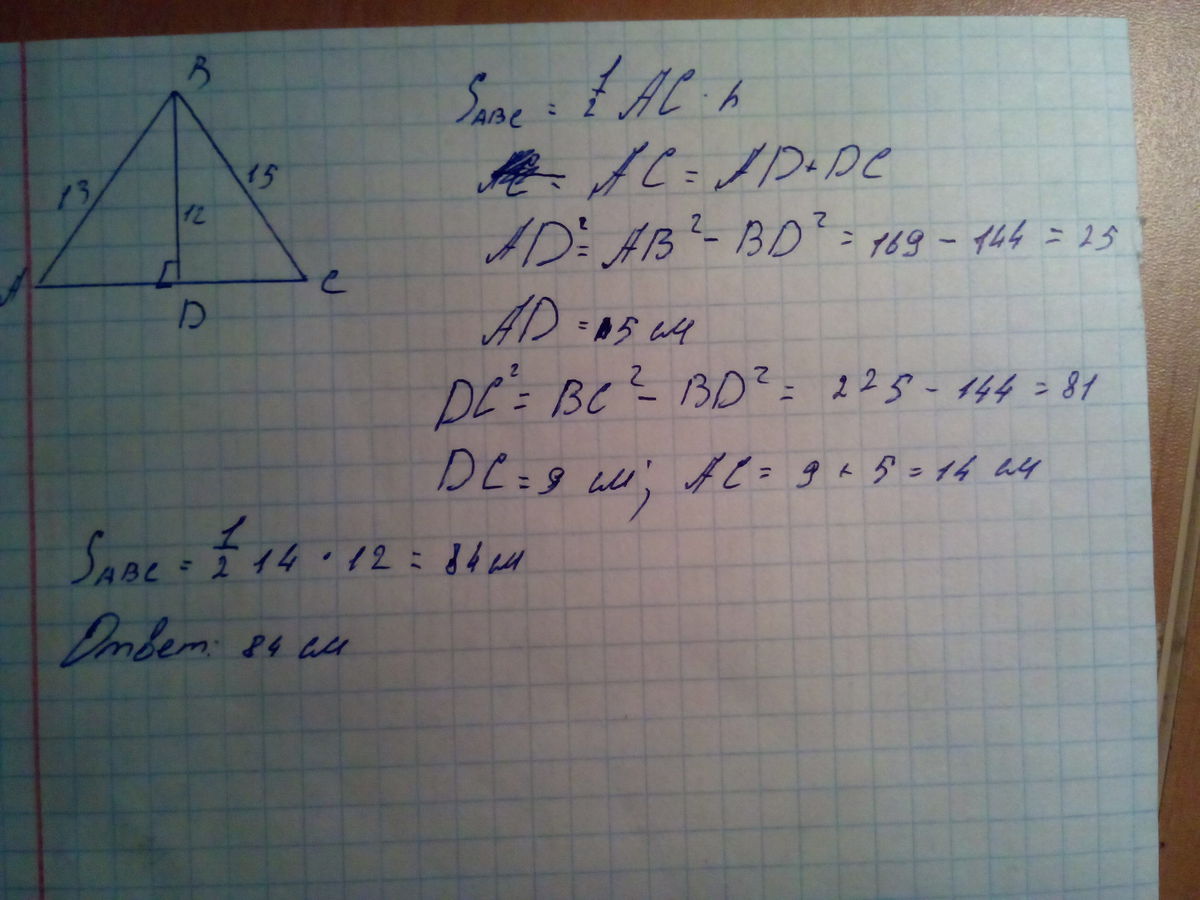 B
13
15
12
A
C
D
S_ABC = 1/2 AC · h
= AC = AD + DC
AD² = AB² - BD² = 169 - 144 = 25
AD = 5 см
DC² = BC² - BD² = 225 - 144 = 81
DC = 9 см; AC = 9 + 5 = 14 см
S_ABC = 1/2 14 · 12 = 84 см
Ответ: 84 см